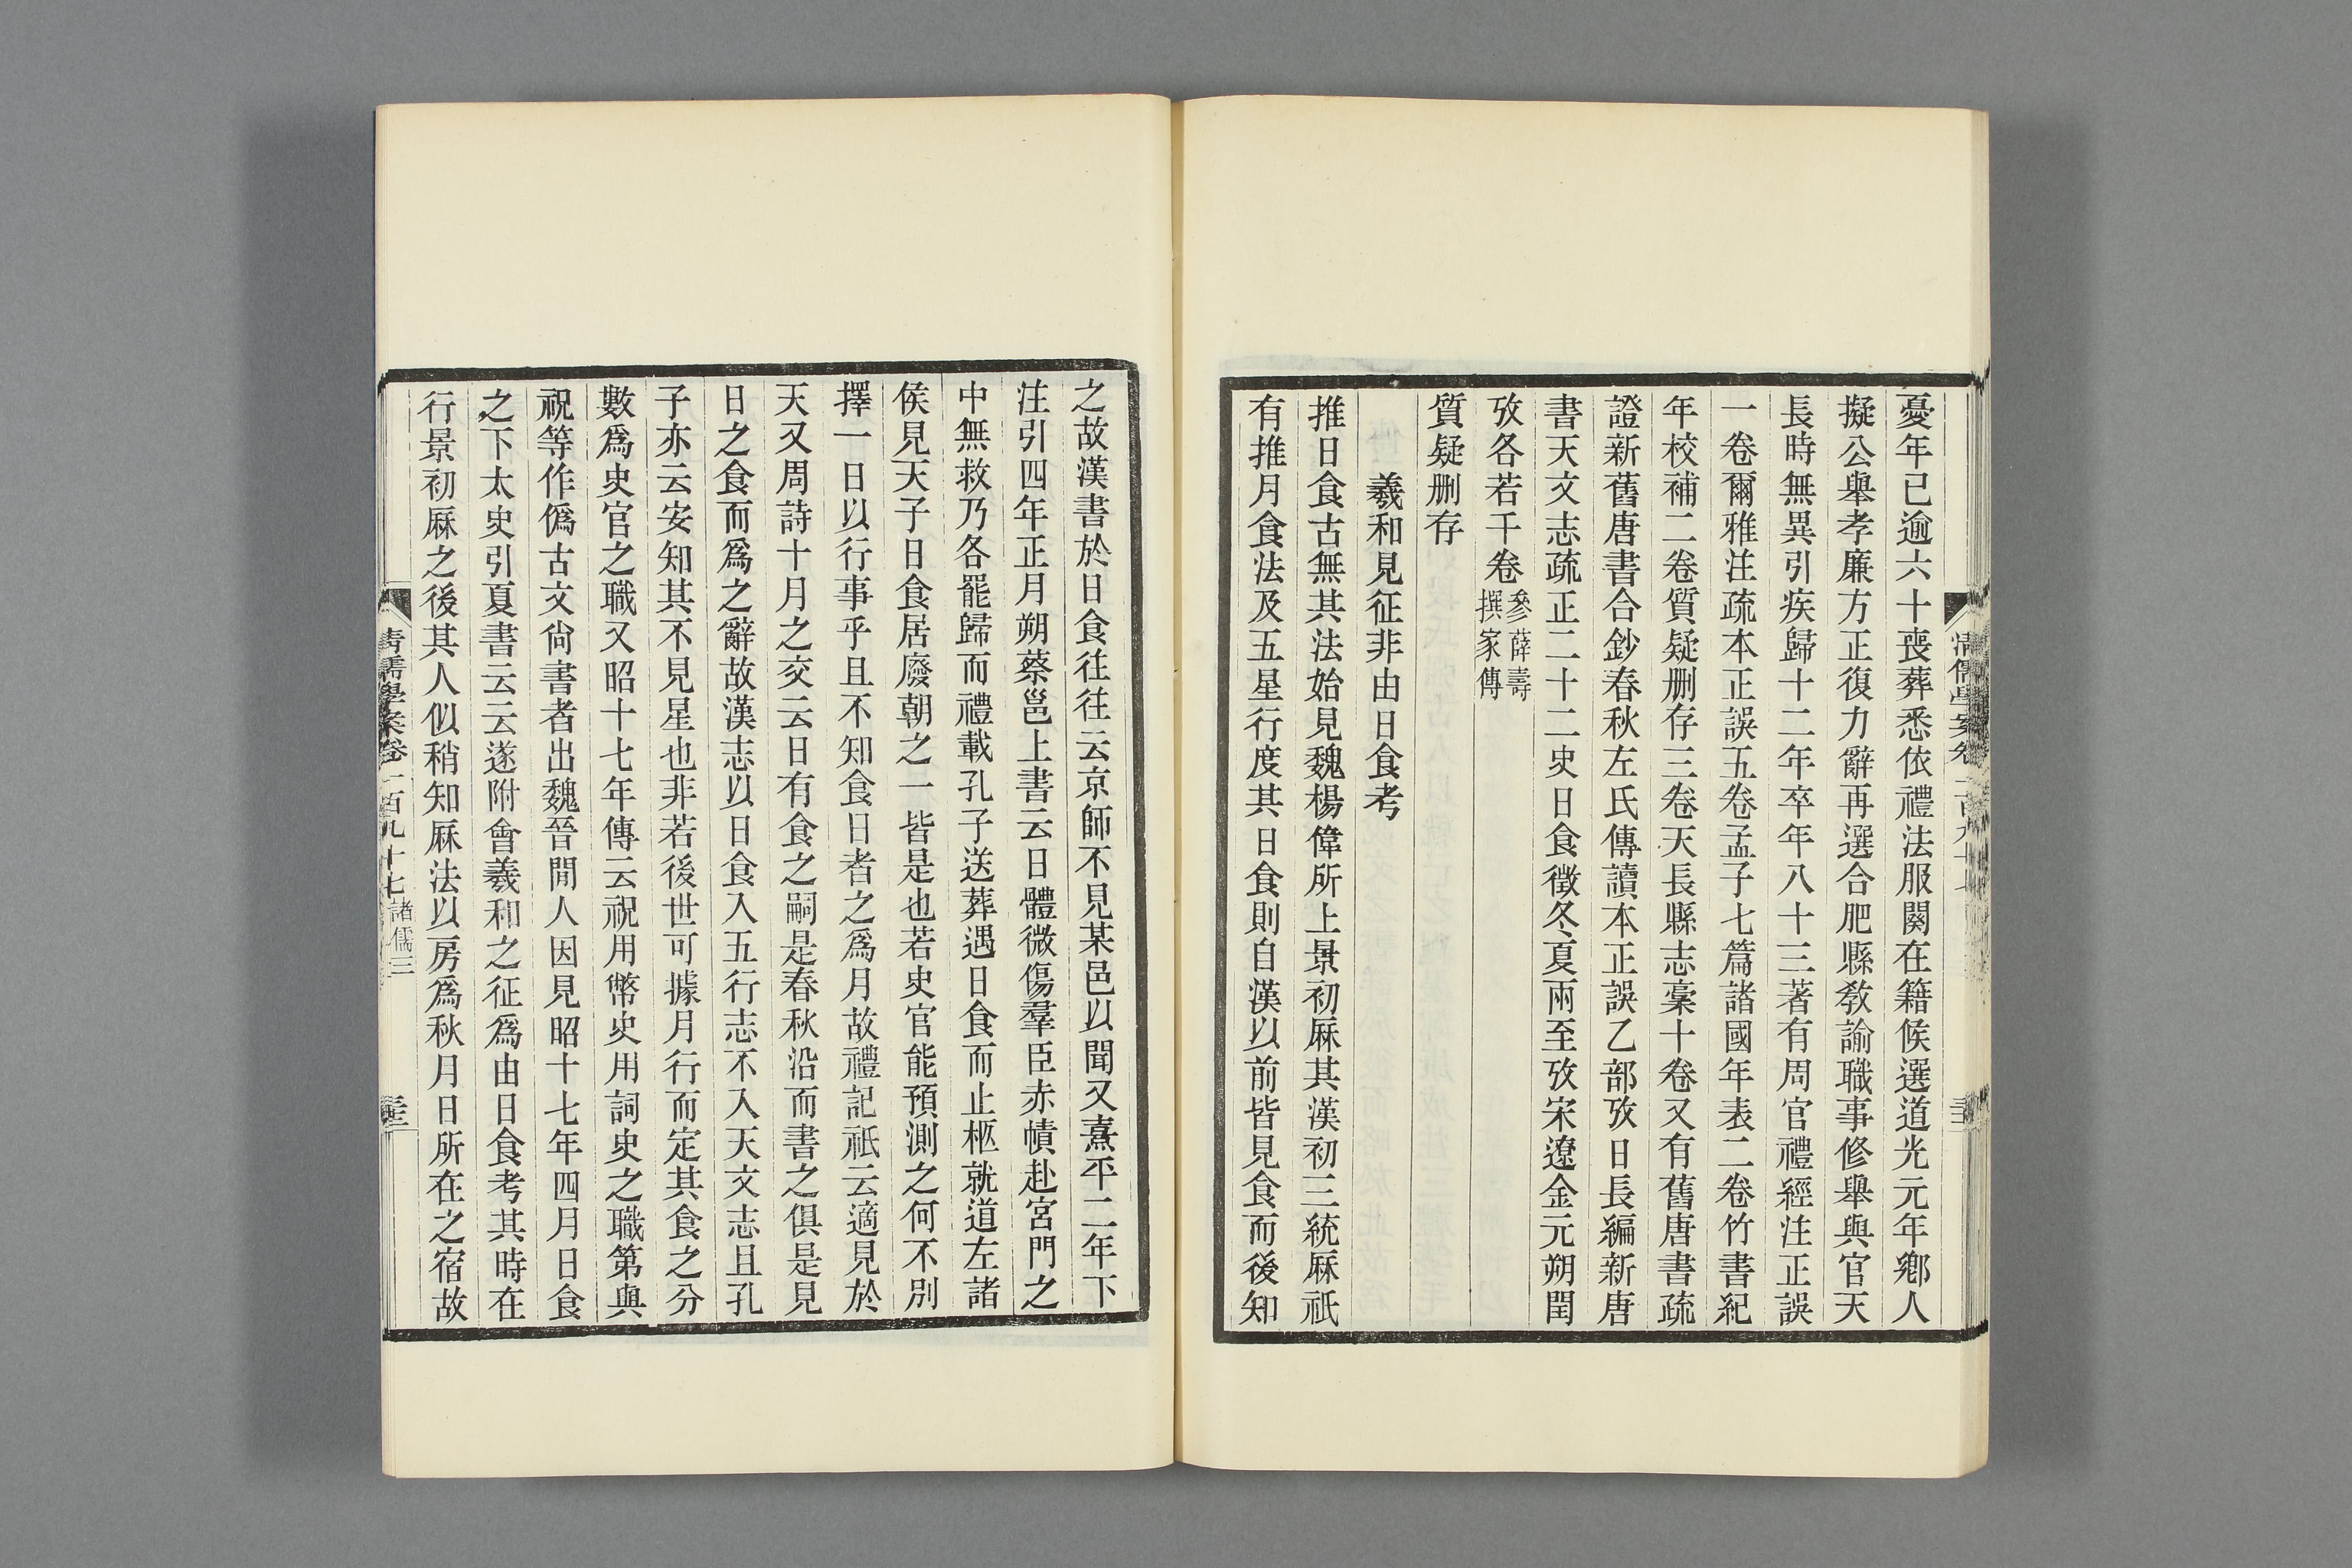 憂年已逾六十喪葬悉依禮法服闋在籍候選道光元年鄕人
擬公舉孝廉方正復力辭再選合肥縣敎諭職事修舉與官天
長時無異引疾歸十二年卒年八十三著有周官禮經注正誤
一卷爾雅注疏本正誤五卷孟子七篇諸國年表二卷竹書紀
年校補二卷質疑刪存三卷天長縣志稾十卷又有舊唐書疏
證新舊唐書合鈔春秋左氏傳讀本正誤乙部攷日長編新唐
書天文志疏正二十二史日食徵冬夏兩至攷宋遼金元朔閏
攷各若干卷參薛壽撰家傳
質疑刪存
羲和見征非由日食考
推日食古無其法始見魏楊偉所上景初厤其漢初三統厤祇
有推月食法及五星行度其日食則自漢以前皆見食而後知
之故漢書於日食往往云京師不見某邑以聞又熹平二年下
注引四年正月朔蔡邕上書云日體微傷羣臣赤幘赴宮門之
中無救乃各罷歸而禮載孔子送葬遇日食而止柩就道左諸
侯見天子日食居廢朝之一皆是也若史官能預測之何不別
擇一日以行事乎且不知食日者之爲月故禮記祇云適見於
天又周詩十月之交云日有食之嗣是春秋沿而書之俱是見
日之食而爲之辭故漢志以日食入五行志不入天文志且孔
子亦云安知其不見星也非若後世可據月行而定其食之分
數爲史官之職又昭十七年傳云祝用幣史用詞史之職第與
祝等作僞古文尙書者出魏晉閒人因見昭十七年四月日食
之下太史引夏書云云遂附會羲和之征爲由日食考其時在
行景初厤之後其人似稍知厤法以房爲秋月日所在之宿故
清儒學案卷一百九十七 諸儒三